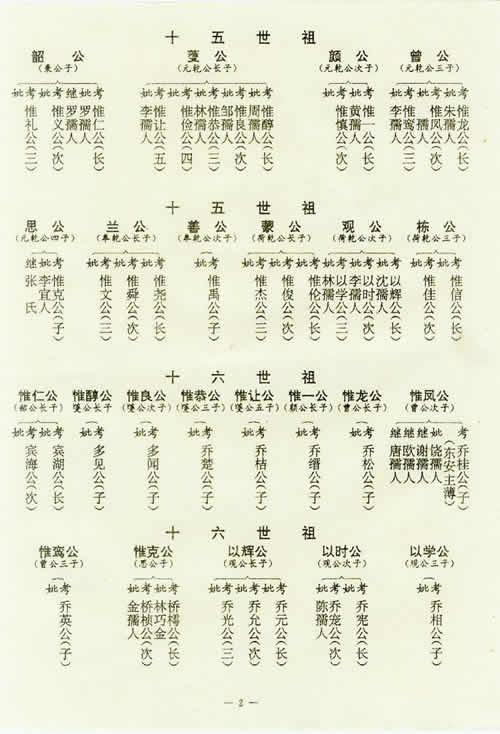 十五世祖
韶公 公 颜公 曾公
(秉公子) (元乾公长子) (元乾公次子) (元乾公三子)
妣考妣考继妣考 妣考妣考妣考妣考妣考 妣考妣考 妣考妣考妣考
惟龙公(长)
朱孺人
惟凤公(次)
孺人
惟鸾公(三)
李孺人
惟一公(长)
黄孺人
惟慎公(次)
惟醇公(长)
周孺人
惟良公(次)
邹孺人
惟恭公(三)
林孺人
惟俭公(四)
惟让公(五)
李孺人
惟仁公(长)
罗孺人
罗孺人
惟文公(次)
惟礼公(三)
十五世祖
思公 兰公 善公 蒙公 观公 栋公
(元乾公四子) (奉乾公长子) (奉乾公次子) (荷乾公长子) (荷乾公次子) (荷乾公三子)
继妣考 妣考妣考妣考 妣考 妣考妣考妣考 妣考妣考妣考 妣考妣考
惟信公(长)
惟佳公(次)
以辉公(长)
沈孺人
以时公(次)
李孺人
以学公(三)
林孺人
惟伦公(长)
惟俊公(次)
惟杰公(三)
惟禹公(子)
惟尧公(长)
惟舜公(次)
惟文公(三)
惟克公(子)
李宜人
张氏
十六世祖
惟仁公 惟醇公 惟良公 惟恭公 惟让公 惟一公 惟龙公 惟凤公
(韶公长子) (公长子) (公次子) (公三子) (公五子) (颜公长子) (曾公长子) (曾公次子)
妣考妣考 妣考 妣考 妣考 妣考 妣考 妣考 继继继妣考
乔桂公(子)
(东安主薄)
饶孺人
谢孺人
欧孺人
唐孺人
乔松公(子)
乔缙公(子)
乔桔公(子)
乔楚公(子)
多闻公(子)
多见公(子)
宾湖公(长)
宾海公(次)
十六世祖
惟鸾公 惟克公 以辉公 以时公 以学公
(曾公三子) (思公子) (观公长子) (观公次子) (观公三子)
妣考 妣考妣考 妣考妣考妣考 妣考妣考 妣考
乔相公(子)
乔宪公(长)
乔宠公(次)
陈孺人
乔元公(长)
乔允公(次)
乔光公(三)
桥樗公(长)
林巧金
桥桢公(次)
金孺人
乔英公(子)
— 2 —